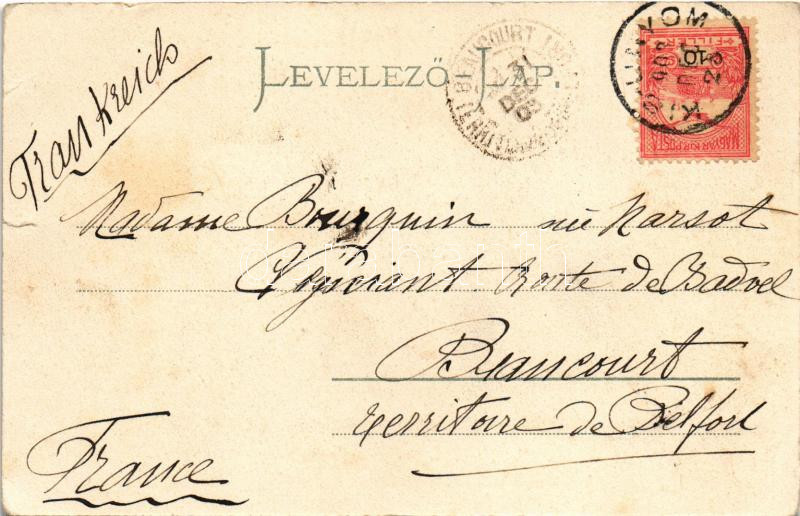 LEVELEZŐ-LAP.
Frankreich
BEAUCOURT
MAGYAR KIR. POSTA
10
FILLÉR
Madame Bourguin née Marsot
Négociant Route de Badvel
Beaucourt
territoire de Belfort
France